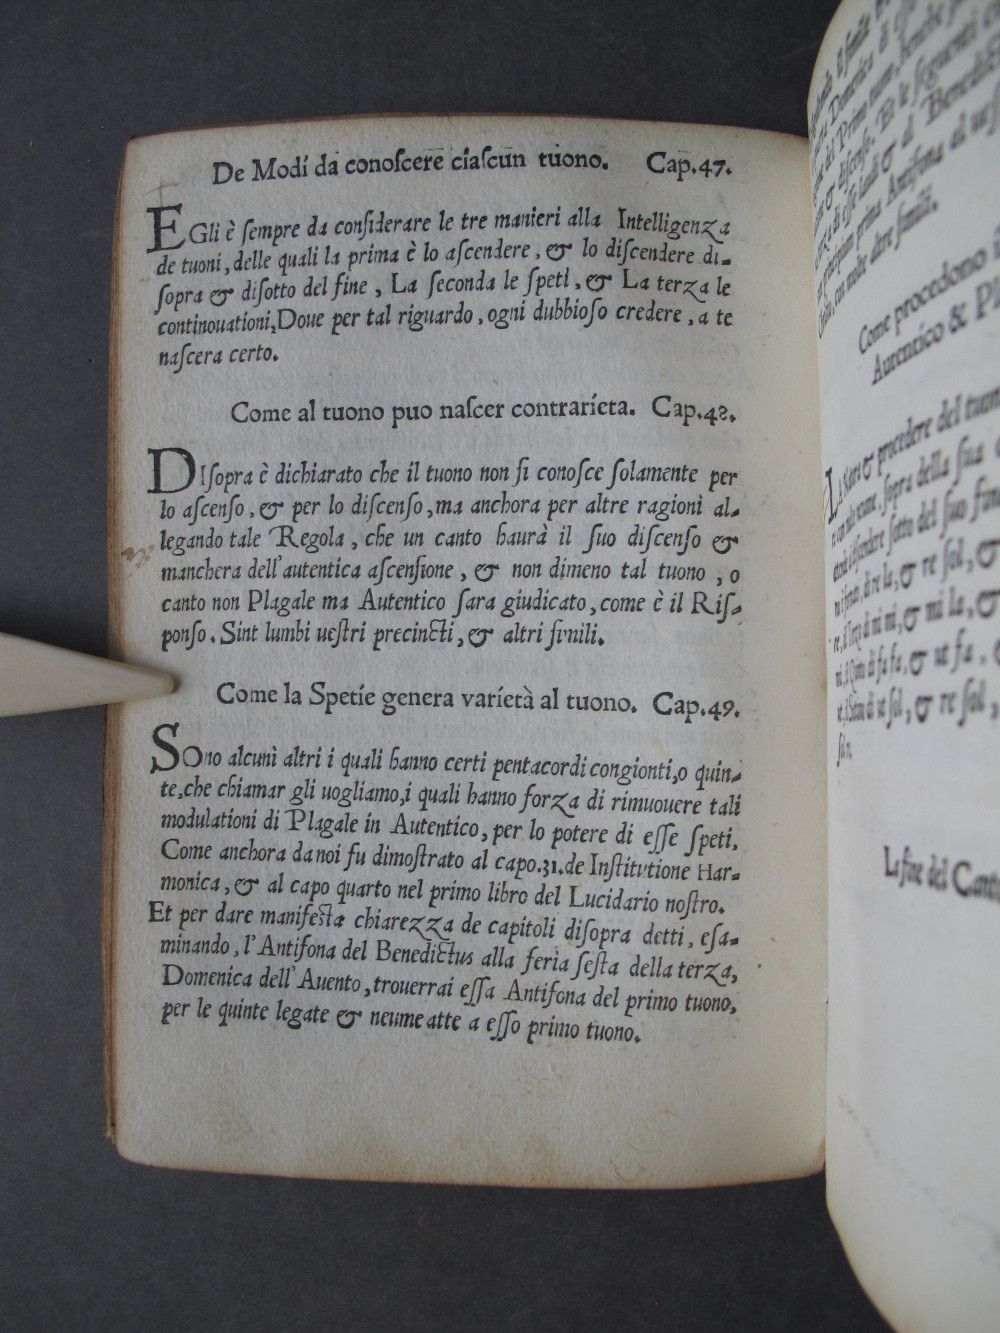 De Modi da conoſcere ciaſcun tuono. Cap.47.
EGli è ſempre da conſiderare le tre manieri alla Intelligenza
de tuoni, delle quali la prima è lo aſcendere, & lo diſcendere di-
ſopra & diſotto del fine, La ſeconda le ſpeti, & La terza le
continouationi, Doue per tal riguardo, ogni dubbioſo credere, a te
naſcera certo.
Come al tuono puo naſcer contrarieta. Cap.48.
DIſopra è dichiarato che il tuono non ſi conoſce ſolamente per
lo aſcenſo, & per lo diſcenſo, ma anchora per altre ragioni al-
legando tale Regola, che un canto haurà il ſuo diſcenſo &
manchera dell'autentica aſcenſione, & non dimeno tal tuono, o
canto non Plagale ma Autentico ſara giudicato, come è il Riſ-
ponſo. Sint lumbi ueſtri precincti, & altri ſimili.
Come la Spetie genera varietà al tuono. Cap.49.
SOno alcuni altri i quali hanno certi pentacordi congionti, o quin-
te, che chiamar gli uogliamo, i quali hanno forza di rimuouere tali
modulationi di Plagale in Autentico, per lo potere di eſſe ſpeti,
Come anchora da noi fu dimoſtrato al capo.31. de Inſtitutione Har-
monica, & al capo quarto nel primo libro del Lucidario noſtro.
Et per dare manifeſta chiarezza de capitoli diſopra detti, eſa-
minando, l'Antifona del Benedictus alla feria ſeſta della terza,
Domenica dell'Auento, trouerrai eſſa Antifona del primo tuono,
per le quinte legate & neumeatte a eſſo primo tuono.
con molte altre ſimili.
Come procedono i
Autentico & Pl
& procedere del tuon
La fine del Cant